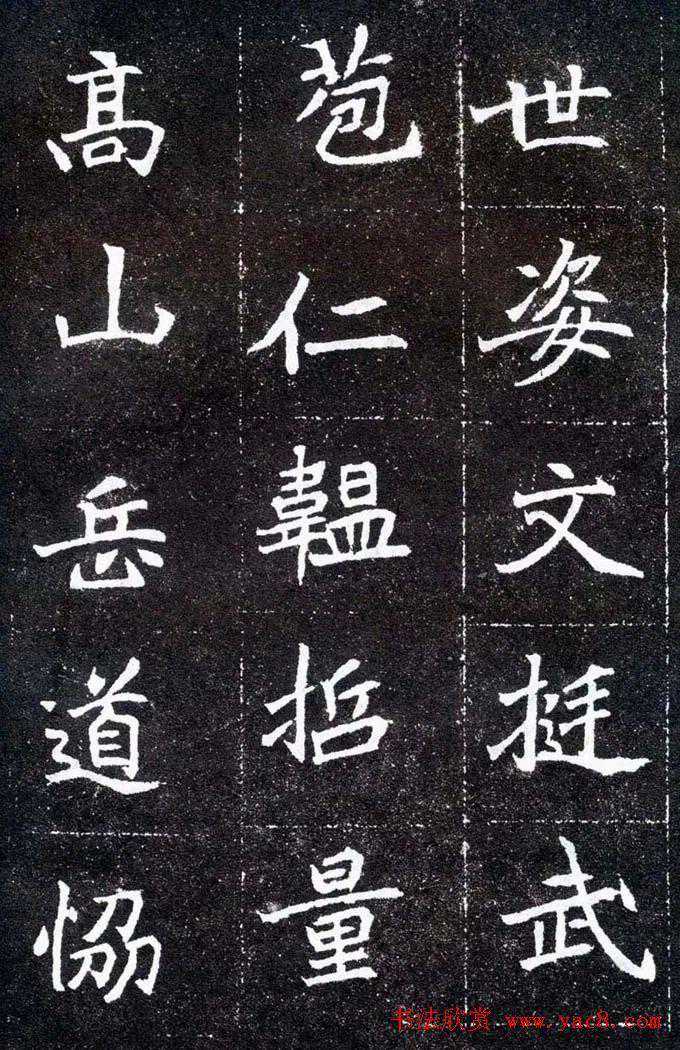 世姿文挺武
苞仁韞哲量
髙山岳道恊
书法欣赏 www.yac8.com